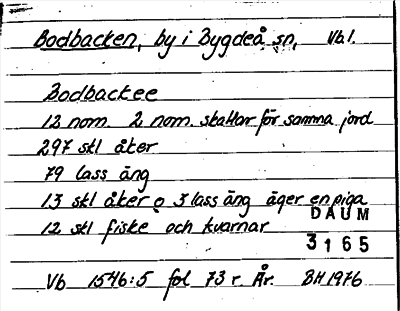 Bodbacken, by i Bygdeå sn, Vb l.
Bodbackee
12 nom. 2 nom. skattar för samma jord
297 skl åker
79 lass äng
13 skl åker o 3 lass äng äger en piga
12 skl fiske och kvarnar
DAUM
3165
Vb 1546:5 fol 73 r. År. BH 1976